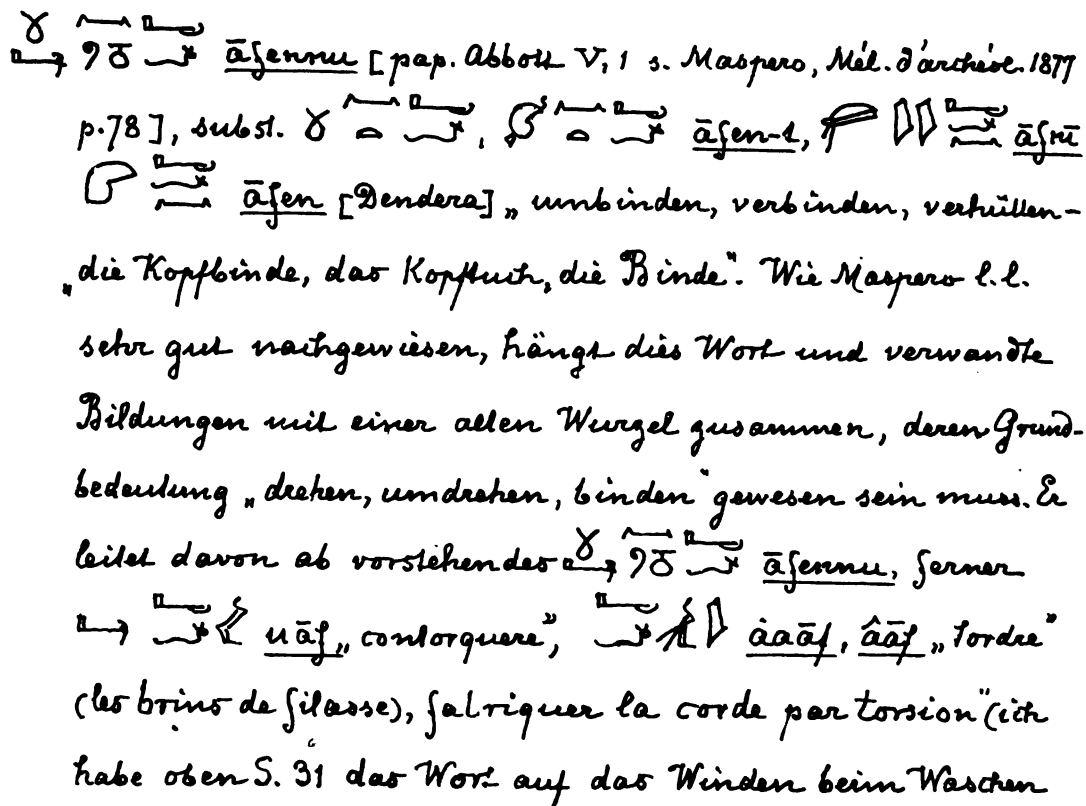 āfennu [pap. Abbott V, 1 s. Maspero, Mél. d'archéol. 1877
p. 78], subst. āfen-t, āfnī
āfen [Dendera] „umbinden, verbinden, verhüllen-
„die Kopfbinde, das Kopftuch, die Binde". Wie Maspero l.l.
sehr gut nachgewiesen, hängt dies Wort und verwandte
Bildungen mit einer alten Wurzel zusammen, deren Grund-
bedeutung „drehen, umdrehen, binden" gewesen sein muss. Er
leitet davon ab vorstehendes āfennu, ferner
uāf „contorquere", ȧaāf, âāf „tordre"
(les brins de filasse), fabriquer la corde par torsion" (ich
habe oben S. 31 das Wort auf das Winden beim Waschen